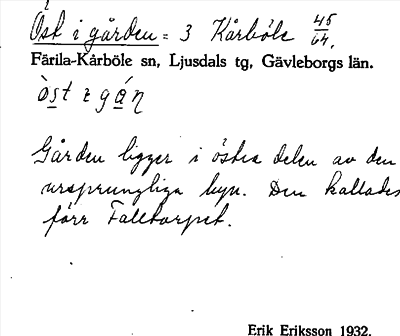 Öst i gården = 3 Kårböle 45/64.
Färila-Kårböle sn, Ljusdals tg, Gävleborgs län.
Gården ligger i östra delen av den
ursprungliga byn. Den kallades
förr Falltorpet.
Erik Eriksson 1932.